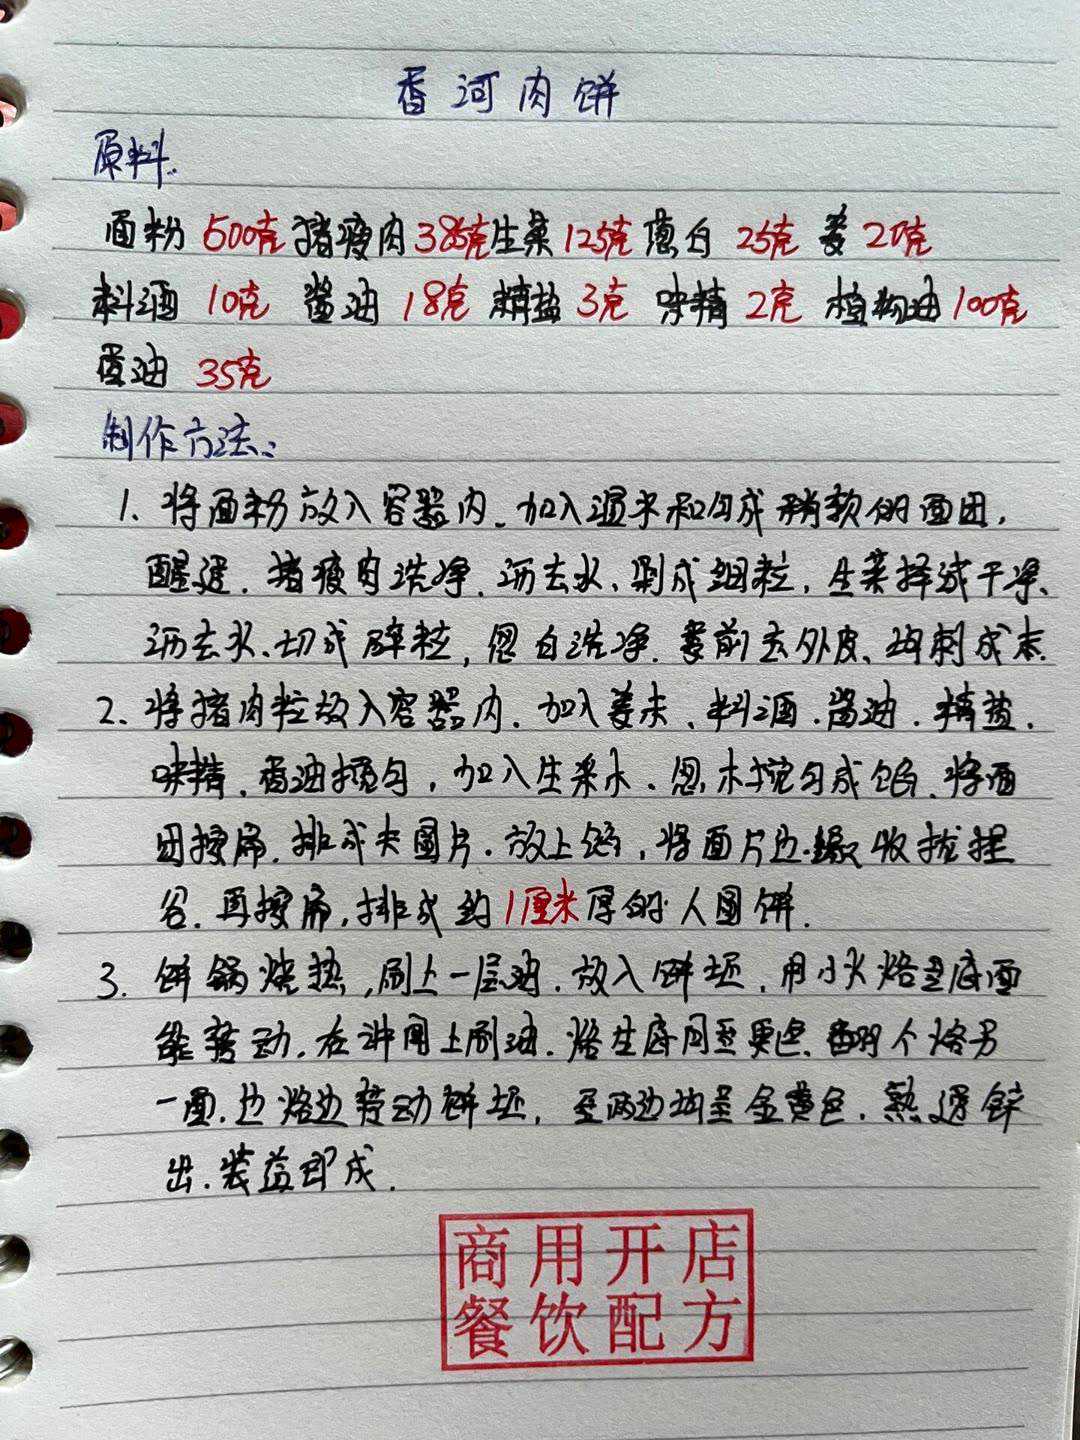 香河肉饼
原料:
面粉 500克 猪瘦肉 385克 生菜 125克 葱白 25克 姜 20克
料酒 10克 酱油 18克 精盐 3克 味精 2克 植物油 100克
香油 35克
制作方法:
1、将面粉放入容器内、加入温水和匀成稍软的面团,
醒透、猪瘦肉洗净、沥去水、剁成细粒,生菜择洗干净、
沥去水、切成碎粒,葱白洗净、姜削去外皮、均剁成末.
2、将猪肉粒放入容器内、加入姜末、料酒、酱油、精盐、
味精、香油搅匀,加入生菜末、葱末搅匀成馅、将面
团按扁、擀成大圆片、放上馅,将面片边缘收拢捏
合、再按扁,擀成约1厘米厚的大圆饼.
3、饼锅烧热,刷上一层油、放入饼坯、用小火烙至底面
能转动、在饼面上刷油、烙至底面至黄色、翻个烙另
一面、边烙边转动饼坯,至两边均呈金黄色、熟透铲
出、装盘即成.
商用开店
餐饮配方